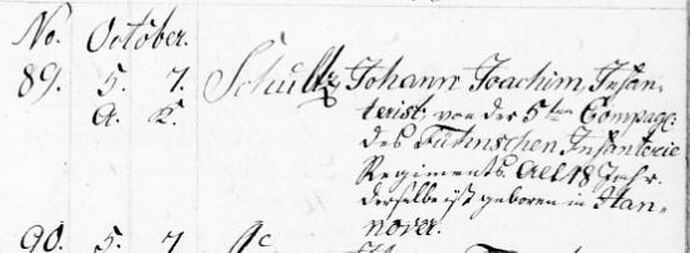 No. October.
89. 5. 7. Schultz Johann Joachim, Infan-
a. K. terist, von der 5ten Compagc:
des Fühnschen Infanterie
Regiments. Aet 18 Jahr.
derselbe ist geboren in Han-
nover.
90. 5. 7